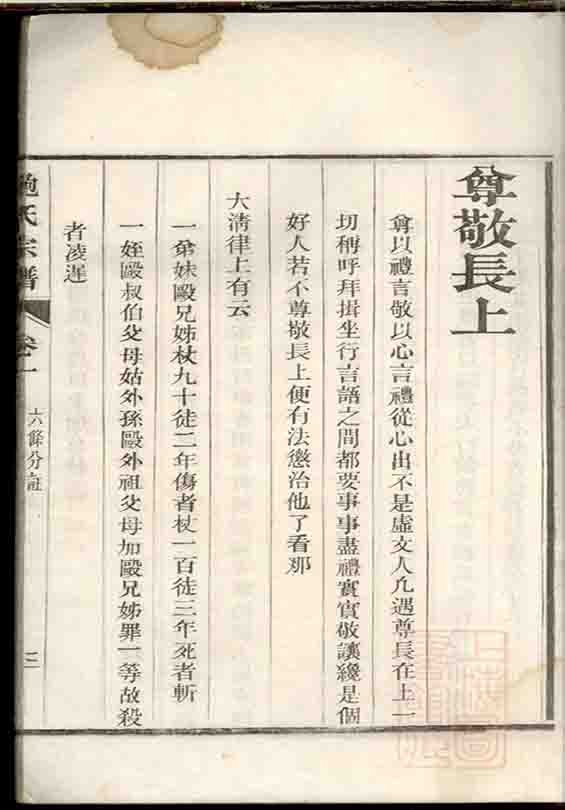 尊敬長上
尊以禮言敬以心言禮從心出不是虛文人凢遇尊長在上一
切稱呼拜揖坐行言語之間都要事事盡禮實實敬讓纔是個
好人若不尊敬長上便有法懲治他了看那
大淸律上有云
一弟妹毆兄姊杖九十徒二年傷者杖一百徒三年死者斬
一姪毆叔伯父母姑外孫毆外祖父母加毆兄姊罪一等故殺
者凌遲
鮑氏宗譜
卷一
六條分註
三